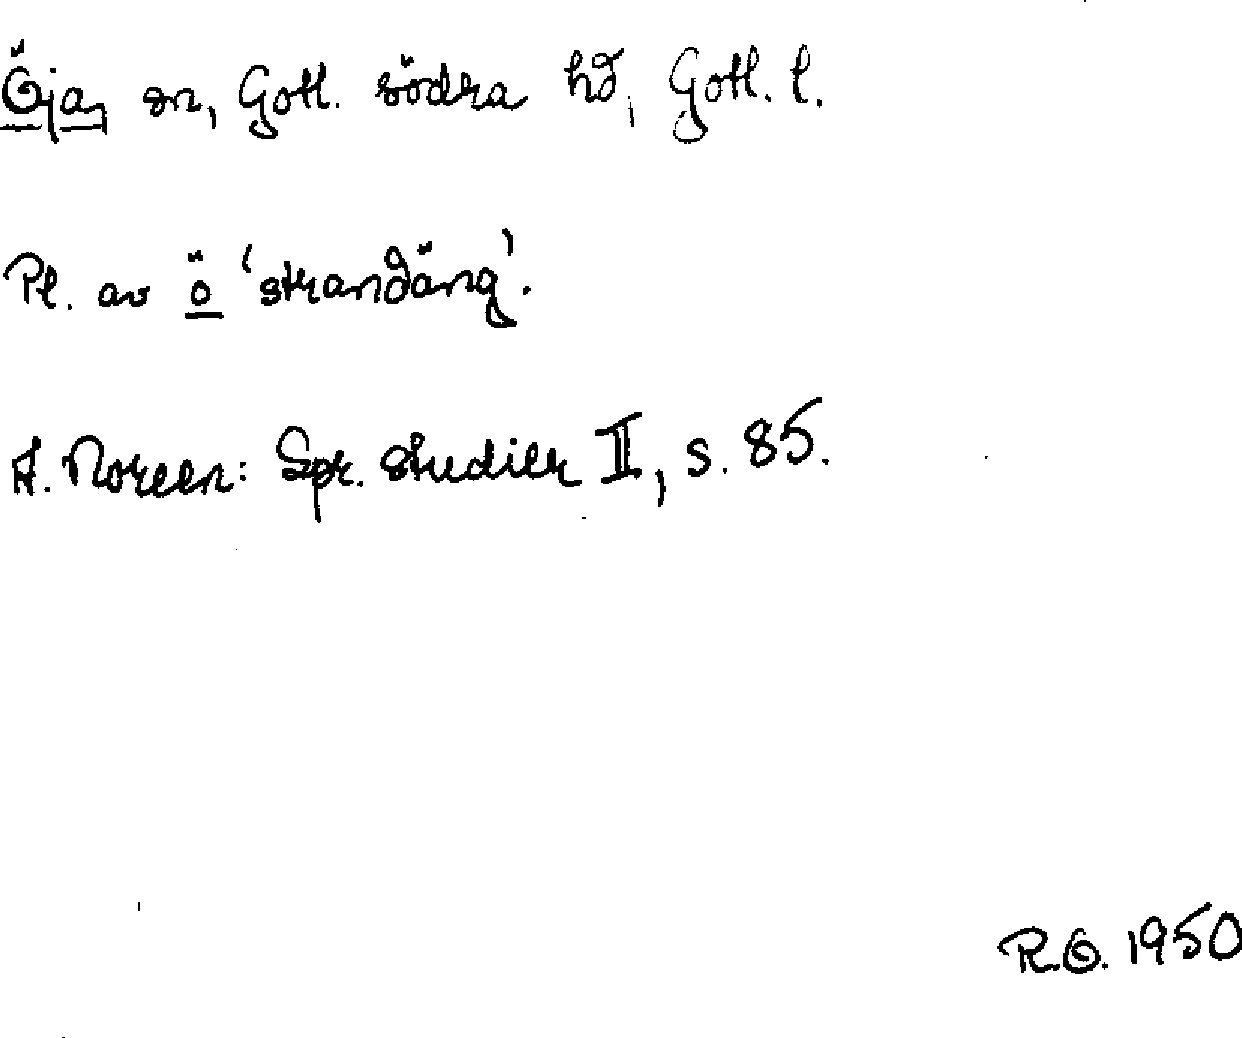 Öja, sn, Gotl. södra hd, Gotl. l.
Pl. av ö 'strandäng'.
A. Noreen: Spr. studier II, s. 85.
R.O. 1950